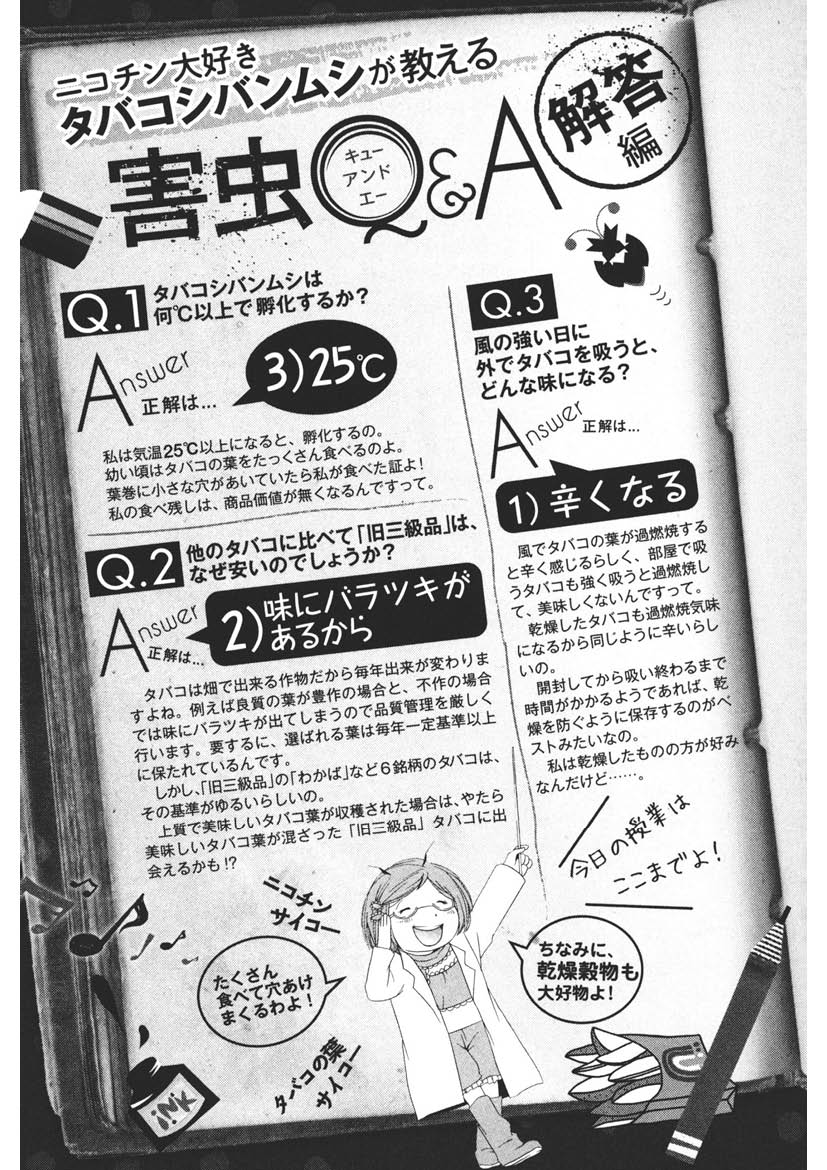 ニコチン大好き
タバコシバンムシが教える
害虫Q&A
キュー
アンド
エー
解答
編
Q.1
タバコシバンムシは
何℃以上で孵化するか？
Answer
正解は…
3)25℃
私は気温25℃以上になると、孵化するの。
幼い頃はタバコの葉をたっくさん食べるのよ。
葉巻に小さな穴があいていたら私が食べた証よ！
私の食べ残しは、商品価値が無くなるんですって。
Q.2
他のタバコに比べて「旧三級品」は、
なぜ安いのでしょうか？
Answer
正解は…
2)味にバラツキが
あるから
タバコは畑で出来る作物だから毎年出来が変わりま
すよね。例えば良質の葉が豊作の場合と、不作の場合
では味にバラツキが出てしまうので品質管理を厳しく
行います。要するに、選ばれる葉は毎年一定基準以上
に保たれているんです。
しかし、「旧三級品」の「わかば」など６銘柄のタバコは、
その基準がゆるいらしいの。
上質で美味しいタバコ葉が収穫された場合は、やたら
美味しいタバコ葉が混ざった「旧三級品」タバコに出
会えるかも!?
Q.3
風の強い日に
外でタバコを吸うと、
どんな味になる？
Answer
正解は…
1)辛くなる
風でタバコの葉が過燃焼する
と辛く感じるらしく、部屋で吸
うタバコも強く吸うと過燃焼し
て、美味しくないんですって。
乾燥したタバコも過燃焼気味
になるから同じように辛いらし
いの。
開封してから吸い終わるまで
時間がかかるようであれば、乾
燥を防ぐように保存するのがベ
ストみたいなの。
私は乾燥したものの方が好み
なんだけど……。
今日の授業は
ここまでよ！
ニコチン
サイコー
たくさん
食べて穴あけ
まくるわよ！
タバコの葉
サイコー
ちなみに、
乾燥穀物も
大好物よ！
iNK